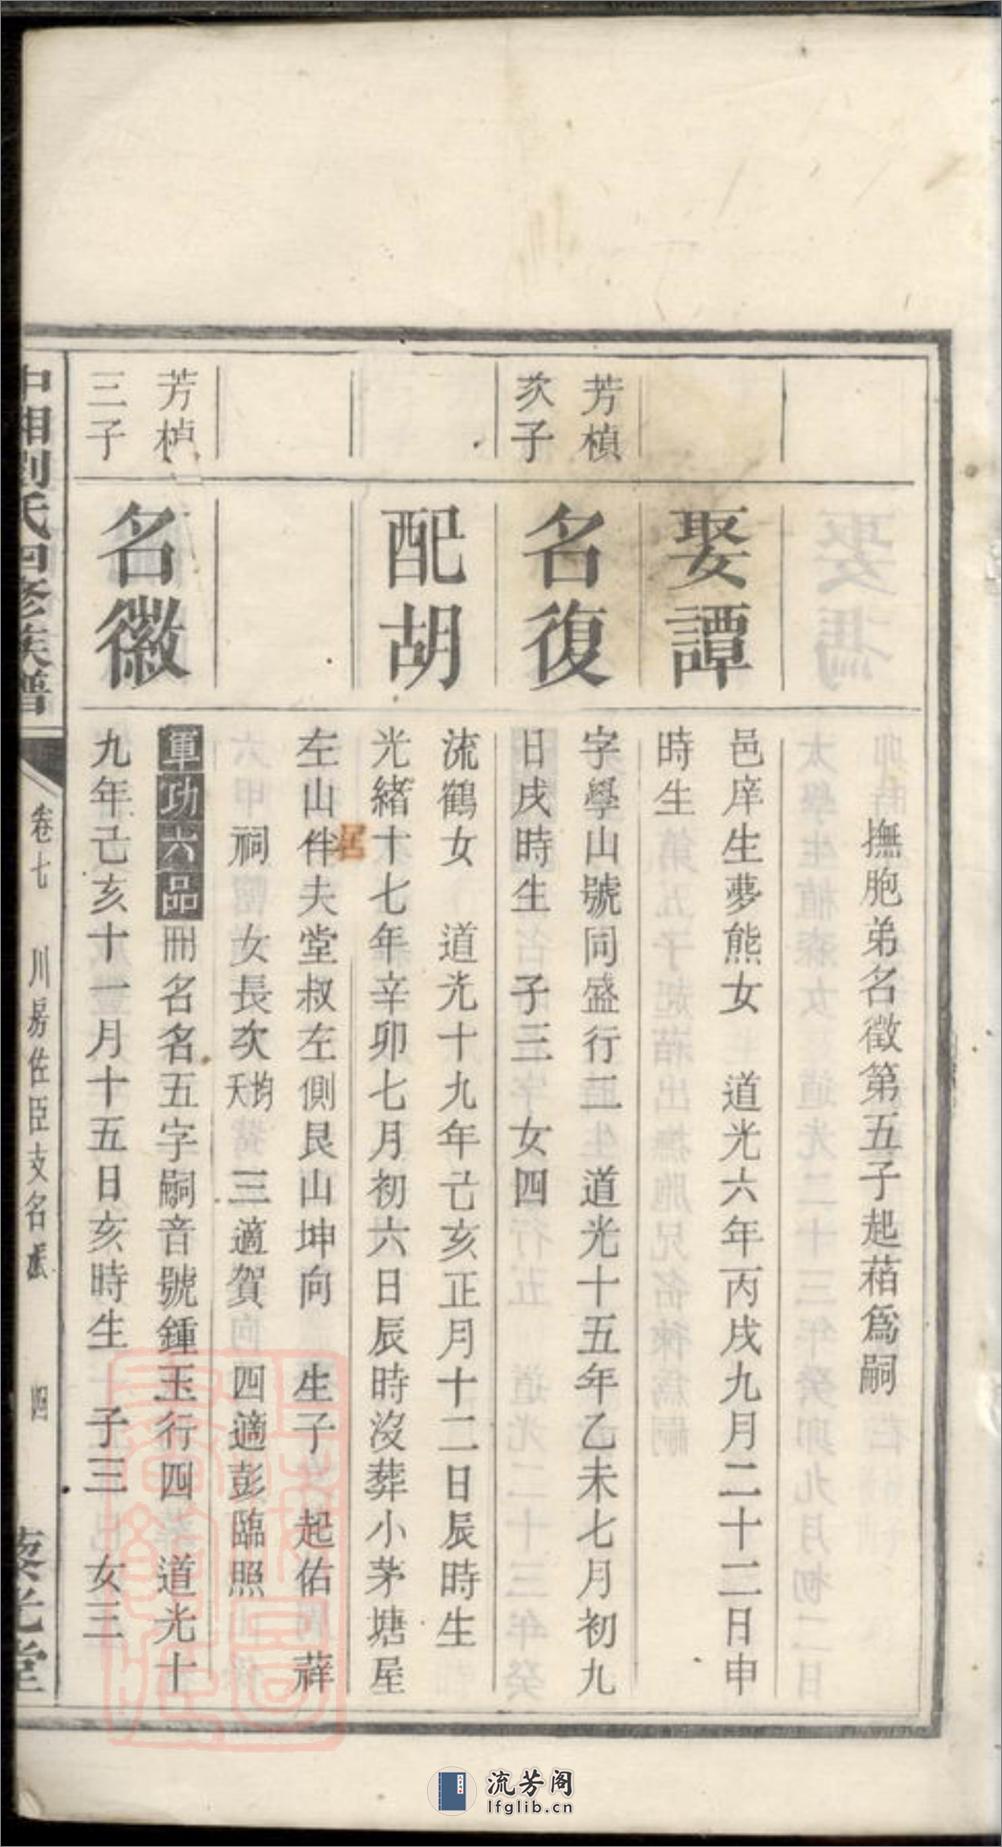 撫胞弟名徵第五子起蓓為嗣
娶譚
邑庠生夢熊女　道光六年丙戌九月二十二日申
時生
芳楨
次子
名復
字學山號同盛行二　道光十五年乙未七月初九
日戌時生　子三　女四
配胡
流鶴女　道光十九年己亥正月十二日辰時生
光緒十七年辛卯七月初六日辰時沒葬小茅塘屋
居
左山伴夫堂叔左側艮山坤向　生子　起佑　薜
祠　女長次均夭　三適賀　四適彭臨照
芳楨
三子
名徽
軍功六品冊名名五字嗣音號鍾玉行四　道光十
九年己亥十一月十五日亥時生　子三　女三
中湘劉氏四修族譜
卷七　川房佐臣支名派　四
藜光堂
流芳阁
lfglib.cn